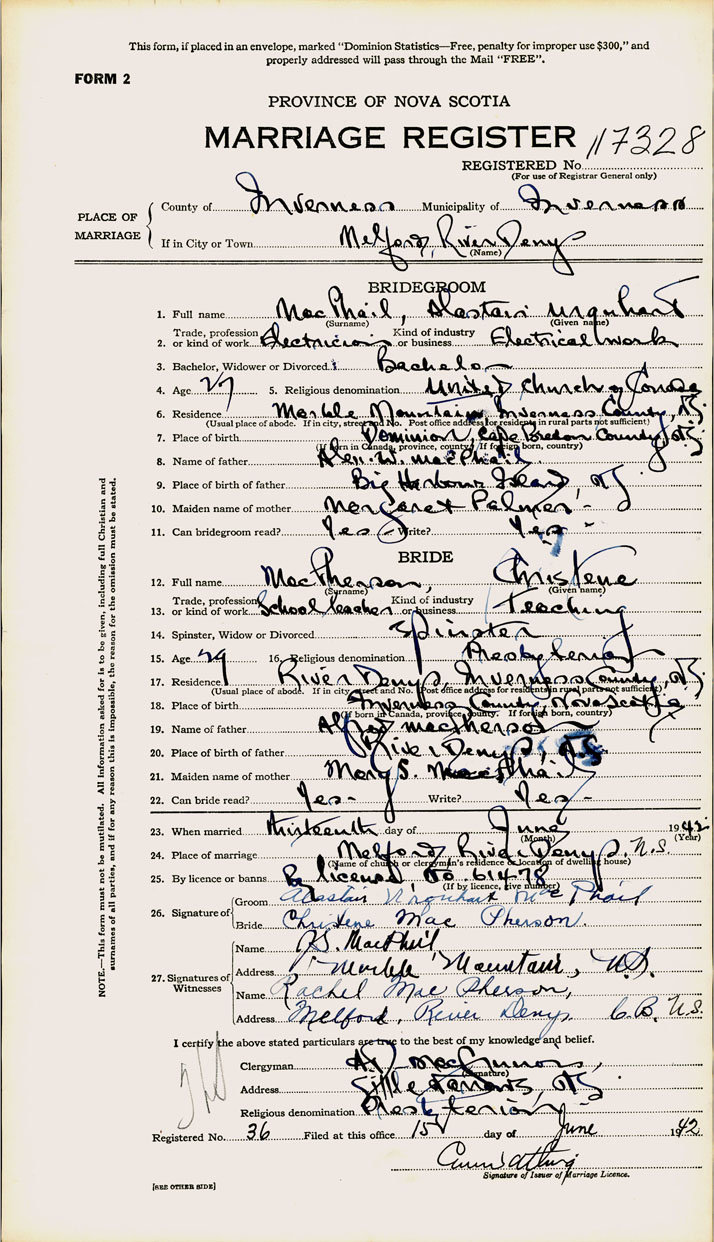 This form, if placed in an envelope, marked "Dominion Statistics—Free, penalty for improper use $300," and
properly addressed will pass through the Mail "FREE".
FORM 2
PROVINCE OF NOVA SCOTIA
MARRIAGE REGISTER 117328
REGISTERED No.
(For use of Registrar General only)
PLACE OF MARRIAGE
County of Inverness Municipality of Inverness
If in City or Town Melford, River Denys
(Name)
BRIDEGROOM
1. Full name MacPhail, Alastair Urquhart
(Surname) (Given name)
2. Trade, profession or kind of work Electrician Kind of industry or business Electrical work
3. Bachelor, Widower or Divorced Bachelor
4. Age 27 5. Religious denomination United Church of Canada
6. Residence Marble Mountain Inverness County, NS
(Usual place of abode. If in city, street and No. Post office address for residents in rural parts not sufficient)
7. Place of birth Dominion, Cape Breton County, NS
(If born in Canada, province, county. If foreign born, country)
8. Name of father Alex. W. MacPhail
9. Place of birth of father Big Harbour Island, NS
10. Maiden name of mother Margaret Palmer
11. Can bridegroom read? Yes - Write? Yes -
BRIDE
12. Full name MacPherson, Christene
(Surname) (Given name)
13. Trade, profession or kind of work School teacher Kind of industry or business Teaching
14. Spinster, Widow or Divorced Spinster
15. Age 29 16. Religious denomination Presbyterian
17. Residence River Denys, Inverness County, NS
(Usual place of abode. If in city, street and No. Post office address for residents in rural parts not sufficient)
18. Place of birth Inverness County, Nova Scotia
(If born in Canada, province, county. If foreign born, country)
19. Name of father Alfred MacPherson
20. Place of birth of father River Denys, NS
21. Maiden name of mother Mary S. MacPhail
22. Can bride read? Yes - Write? Yes -
23. When married thirteenth day of June 1942
(Month) (Year)
24. Place of marriage Melford, River Denys, N.S.
(Name of church or clergyman's residence or location of dwelling house)
25. By licence or banns By license No 61478
(If by licence, give number)
26. Signature of
Groom Alastair Urquhart MacPhail
Bride Christene MacPherson.
27. Signatures of Witnesses
Name MacPhail
Address Marble Mountain, N.S.
Name Rachel MacPherson,
Address Melford, River Denys C.B. N.S.
I certify the above stated particulars are true to the best of my knowledge and belief.
Clergyman
(Signature)
Address Little Narrows, NS
Religious denomination Presbyterian
Registered No. 36 Filed at this office 15 day of June 1942
Signature of Issuer of Marriage Licence.
[SEE OTHER SIDE]
NOTE.—This form must not be mutilated. All information asked for is to be given, including full Christian and
surnames of all parties, and if for any reason this is impossible, the reason for the omission must be stated.